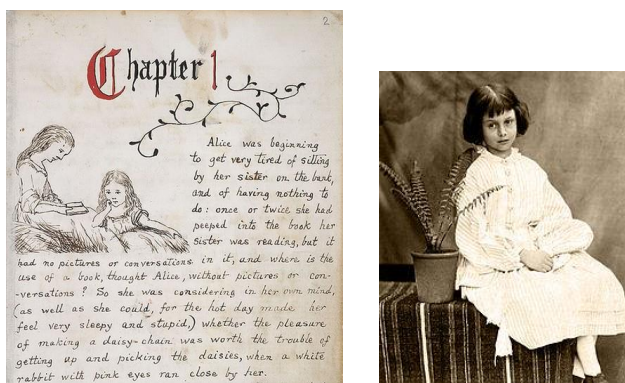 2
Chapter 1
Alice was beginning
to get very tired of sitting
by her sister on the bank,
and of having nothing to
do: once or twice she had
peeped into the book her
sister was reading, but it
had no pictures or conversations in it, and where is the
use of a book, thought Alice, without pictures or con-
-versations? So she was considering in her own mind,
(as well as she could, for the hot day made her
feel very sleepy and stupid,) whether the pleasure
of making a daisy-chain was worth the trouble of
getting up and picking the daisies, when a white
rabbit with pink eyes ran close by her.